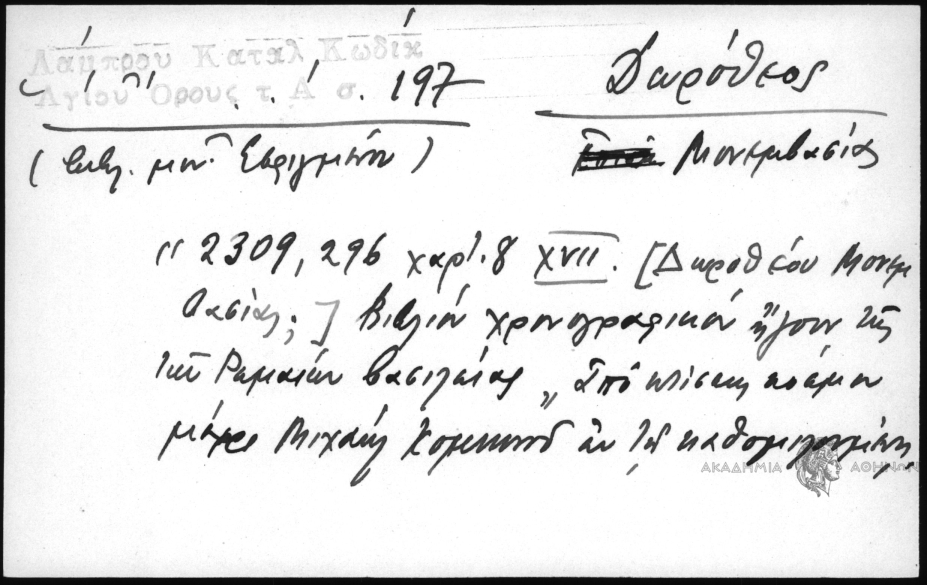 Λάμπρου Κατάλ Κωδίκ
Δωρόθεος
Αγίου Όρους τ. Α σ. 197
(βιβλ. μον. Εσφιγμένου)
Μονεμβασίας
" 2309, 296 χαρτ. 8 XVII. [Δωροθέου Μονεμ
βασίας;] Βιβλίον χρονογραφικόν ἤγουν τῆς
τῶν Ρωμαίων βασιλείας „ ἀπό κτίσεως κόσμου
μέχρι Μιχαήλ Κομνηνοῦ ἐν τῇ καθομιλουμένῃ
ΑΚΑΔΗΜΙΑ ΑΘΗΝΩΝ